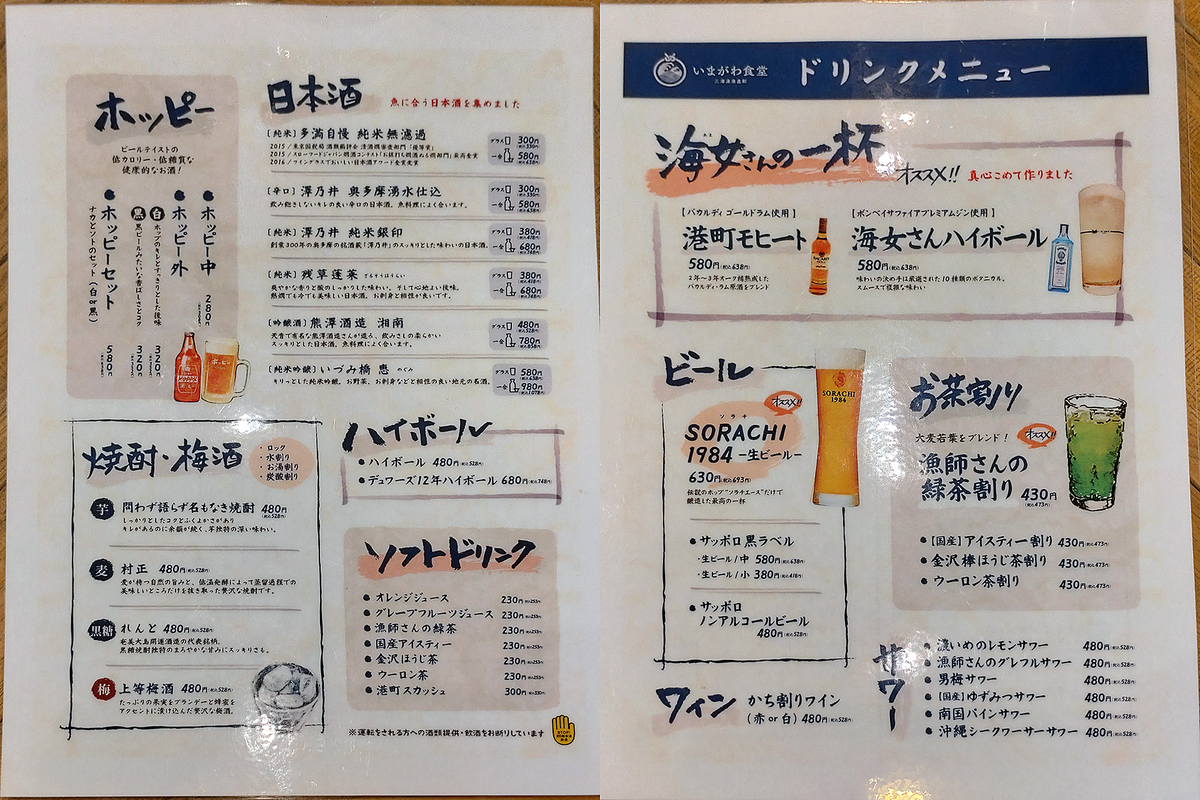 ホッピー
ビールテイストの
低カロリー・低糖質な
健康的なお酒！
●ホッピー中 280円
●ホッピー外
白 ホップのキレとすっきりとした後味 320円
黒 黒ビールみたいな香ばしさとコク 320円
●ホッピーセット
ナカとソトのセット（白or黒） 580円
日本酒 魚に合う日本酒を集めました
［純米］多満自慢 純米無濾過
グラス 300円(税込330円)
一合 580円(税込638円)
［辛口］澤乃井 奥多摩湧水仕込
飲み飽きしないキレの良い辛口の日本酒。魚料理によく合います。
グラス 300円(税込330円)
一合 580円(税込638円)
［純米］澤乃井 純米銀印
創業300年の奥多摩の銘酒蔵「澤乃井」のスッキリとした味わいの日本酒。
グラス 380円(税込418円)
一合 680円(税込748円)
［純米］残草蓬莱 ざるそうほうらい
爽やかな香りと酸のしっかりした味わい。そして心地よい後味。
熱燗でも冷でも美味しい日本酒。お刺身と相性が良いです。
グラス 380円(税込418円)
一合 680円(税込748円)
［吟醸酒］熊澤酒造 湘南
天青で有名な熊澤酒造さんが造る、飲みさしの柔らかい
スッキリとした日本酒。魚料理によく合います。
グラス 480円(税込528円)
一合 780円(税込858円)
［純米吟醸］いづみ橋 恵 めぐみ
キリっとした純米吟醸。お野菜、お刺身などと相性の良い地元の名酒。
グラス 580円(税込638円)
一合 980円(税込1078円)
焼酎・梅酒
・ロック
・水割り
・お湯割り
・炭酸割り
芋 問わず語らず名もなき焼酎 480円(税込528円)
しっかりとしたコクとふくよかさがあり
キレがあるのに余韻が続く、芋独特の深い味わい。
麦 村正 480円(税込528円)
麦が持つ自然の旨みと、低温発酵によって蒸留過程での
美味しいところだけを抜き取った贅沢な焼酎です。
黒糖 れんと 480円(税込528円)
奄美大島開運酒造の代表銘柄。
黒糖焼酎独特のまろやかな甘みにスッキリさも。
梅 上等梅酒 480円(税込528円)
たっぷりの果実をブランデーと蜂蜜を
アクセントに漬け込んだ贅沢な梅酒。
ハイボール
●ハイボール 480円(税込528円)
●デュワーズ12年ハイボール 680円(税込748円)
ソフトドリンク
●オレンジジュース 230円(税込253円)
●グレープフルーツジュース 230円(税込253円)
●漁師さんの緑茶 230円(税込253円)
●国産アイスティー 230円(税込253円)
●金沢ほうじ茶 230円(税込253円)
●ウーロン茶 230円(税込253円)
●港町スカッシュ 300円(税込330円)
※運転をされる方への酒類提供・飲酒をお断りしています
STOP!
いまがわ食堂
ドリンクメニュー
海女さんの一杯
オススメ!! 真心こめて作りました
【バカルディ ゴールドラム使用】
港町モヒート
580円(税込638円)
2年〜3年オーク樽熟成した
バカルディ・ラム原酒をブレンド
【ボンベイサファイアプレミアムジン使用】
海女さんハイボール
580円(税込638円)
味わいの決め手は厳選された10種類のボタニカル。
スムースで複雑な味わい
ビール
オススメ!!
ソラチ
SORACHI
1984 －生ビール－
630円(税込693円)
伝説のホップ“ソラチエース”だけで
醸造した最高の一杯
SORACHI
1984
●サッポロ黒ラベル
・生ビール/中 580円(税込638円)
・生ビール/小 380円(税込418円)
●サッポロ
ノンアルコールビール
480円(税込528円)
お茶割り
大麦若葉をブレンド！ オススメ!!
漁師さんの
緑茶割り 430円(税込473円)
●【国産】アイスティー割り 430円(税込473円)
●金沢棒ほうじ茶割り 430円(税込473円)
●ウーロン茶割り 430円(税込473円)
ワイン
かち割りワイン
（赤or白）480円(税込528円)
サワー
●濃いめのレモンサワー 480円(税込528円)
●漁師さんのグレフルサワー 480円(税込528円)
●男梅サワー 480円(税込528円)
●【国産】ゆずみつサワー 480円(税込528円)
●南国パインサワー 480円(税込528円)
●沖縄シークワーサーサワー 480円(税込528円)